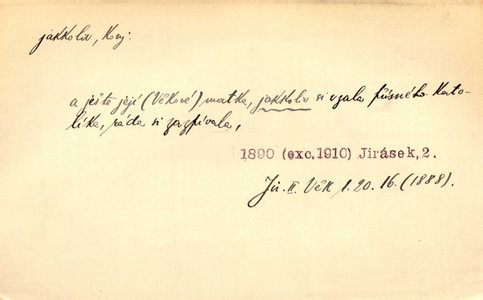 jakkoliv, konj.
a ještě její (Věkové) matka, jakkoliv si vzala přísného kato-
líka, ráda si zazpívala,
1890 (exc.1910) Jirásek,2.
Jir. II. Věk 1. 20. 16. (1888).